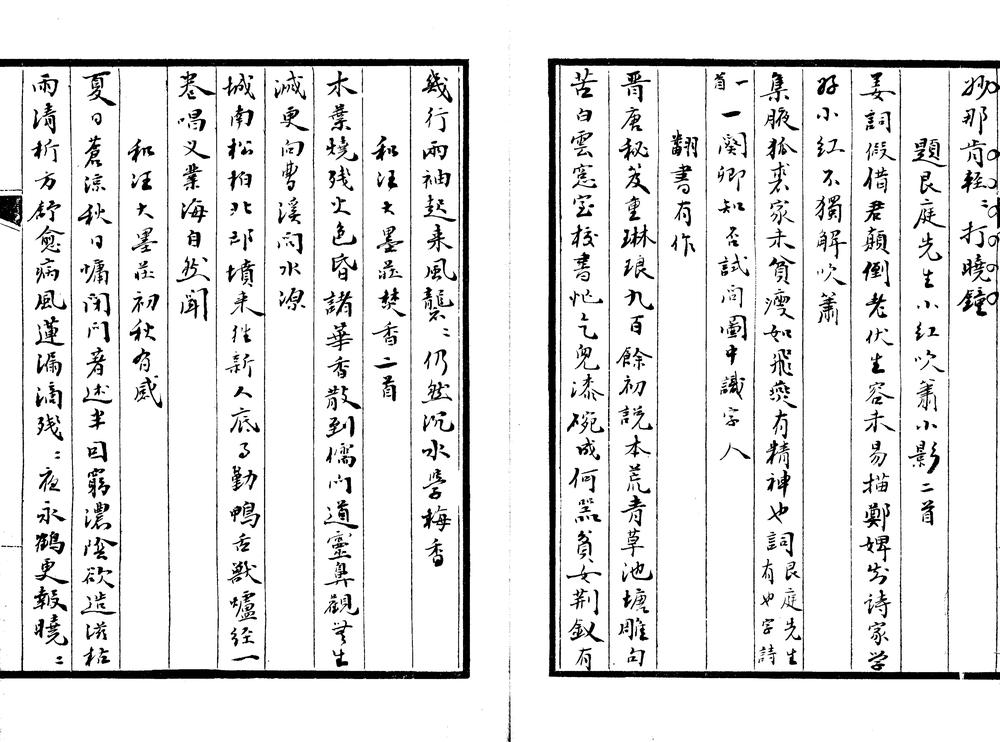 妙那肯輕〻打曉鐘
題艮庭先生小紅吹簫小影二首
姜詞假借君顛倒老伏生容未易描鄭婢出詩家学
好小紅不獨解吹簫
集腋狐裘家未貧瘦如飛燕有精神也詞艮庭先生有也字詩
一首一闋卿知否試問圖中識字人
翻書有作
晋唐秘笈重琳琅九百餘初說本荒青草池塘雕句
苦白雲窓室校書忙乞兒漆碗成何器貧女荆釵有
幾行兩袖起来風襲〻仍然沉水學梅香
和汪大墨莊焚香二首
木葉燒残火色昏諸華香散到儒門道靈鼻觀無生
滅更向曹溪问水源
城南松柏北邙墳来往新人底事勤鴨舌獸爐經一
卷唱义業海自然聞
和汪大墨莊初秋有感
夏日蒼涼秋日慵閉门著述半囙窮濃陰欲造滋梧
雨清析方舒愈病風蓮漏滴残〻夜永鶴更報曉〻